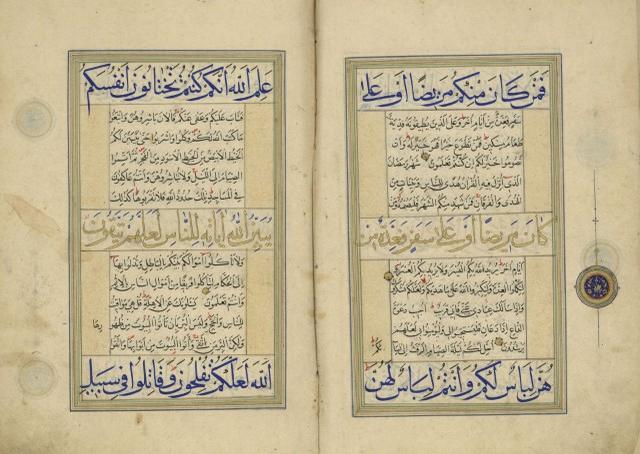 فمن كان منكم مريضا أو على
سفر فعدة من أيام أخر وعلى الذين يطيقونه فدية
طعام مسكين فمن تطوع خيرا فهو خير له وأن
تصوموا خير لكم إن كنتم تعلمون شهر رمضان
الذي أنزل فيه القرآن هدى للناس وبينات من
الهدى والفرقان فمن شهد منكم الشهر فليصمه ومن
كان مريضا أو على سفر فعدة من
أيام أخر يريد الله بكم اليسر ولا يريد بكم العسر
ولتكملوا العدة ولتكبروا الله على ما هداكم ولعلكم تشكرون
وإذا سألك عبادي عني فإني قريب أجيب دعوة
الداع إذا دعان فليستجيبوا لي وليؤمنوا بي لعلهم
يرشدون أحل لكم ليلة الصيام الرفث إلى نسائكم
هن لباس لكم وأنتم لباس لهن
علم الله أنكم كنتم تختانون أنفسكم
فتاب عليكم وعفا عنكم فالآن باشروهن وابتغوا
ما كتب الله لكم وكلوا واشربوا حتى يتبين لكم
الخيط الأبيض من الخيط الأسود من الفجر ثم أتموا
الصيام إلى الليل ولا تباشروهن وأنتم عاكفون
في المساجد تلك حدود الله فلا تقربوها كذلك
يبين الله آياته للناس لعلهم يتقون
ولا تأكلوا أموالكم بينكم بالباطل وتدلوا بها
إلى الحكام لتأكلوا فريقا من أموال الناس بالإثم
وأنتم تعلمون يسألونك عن الأهلة قل هي مواقيت
للناس والحج وليس البر بأن تأتوا البيوت من ظهورها
ولكن البر من اتقى وأتوا البيوت من أبوابها واتقوا
الله لعلكم تفلحون وقاتلوا في سبيل